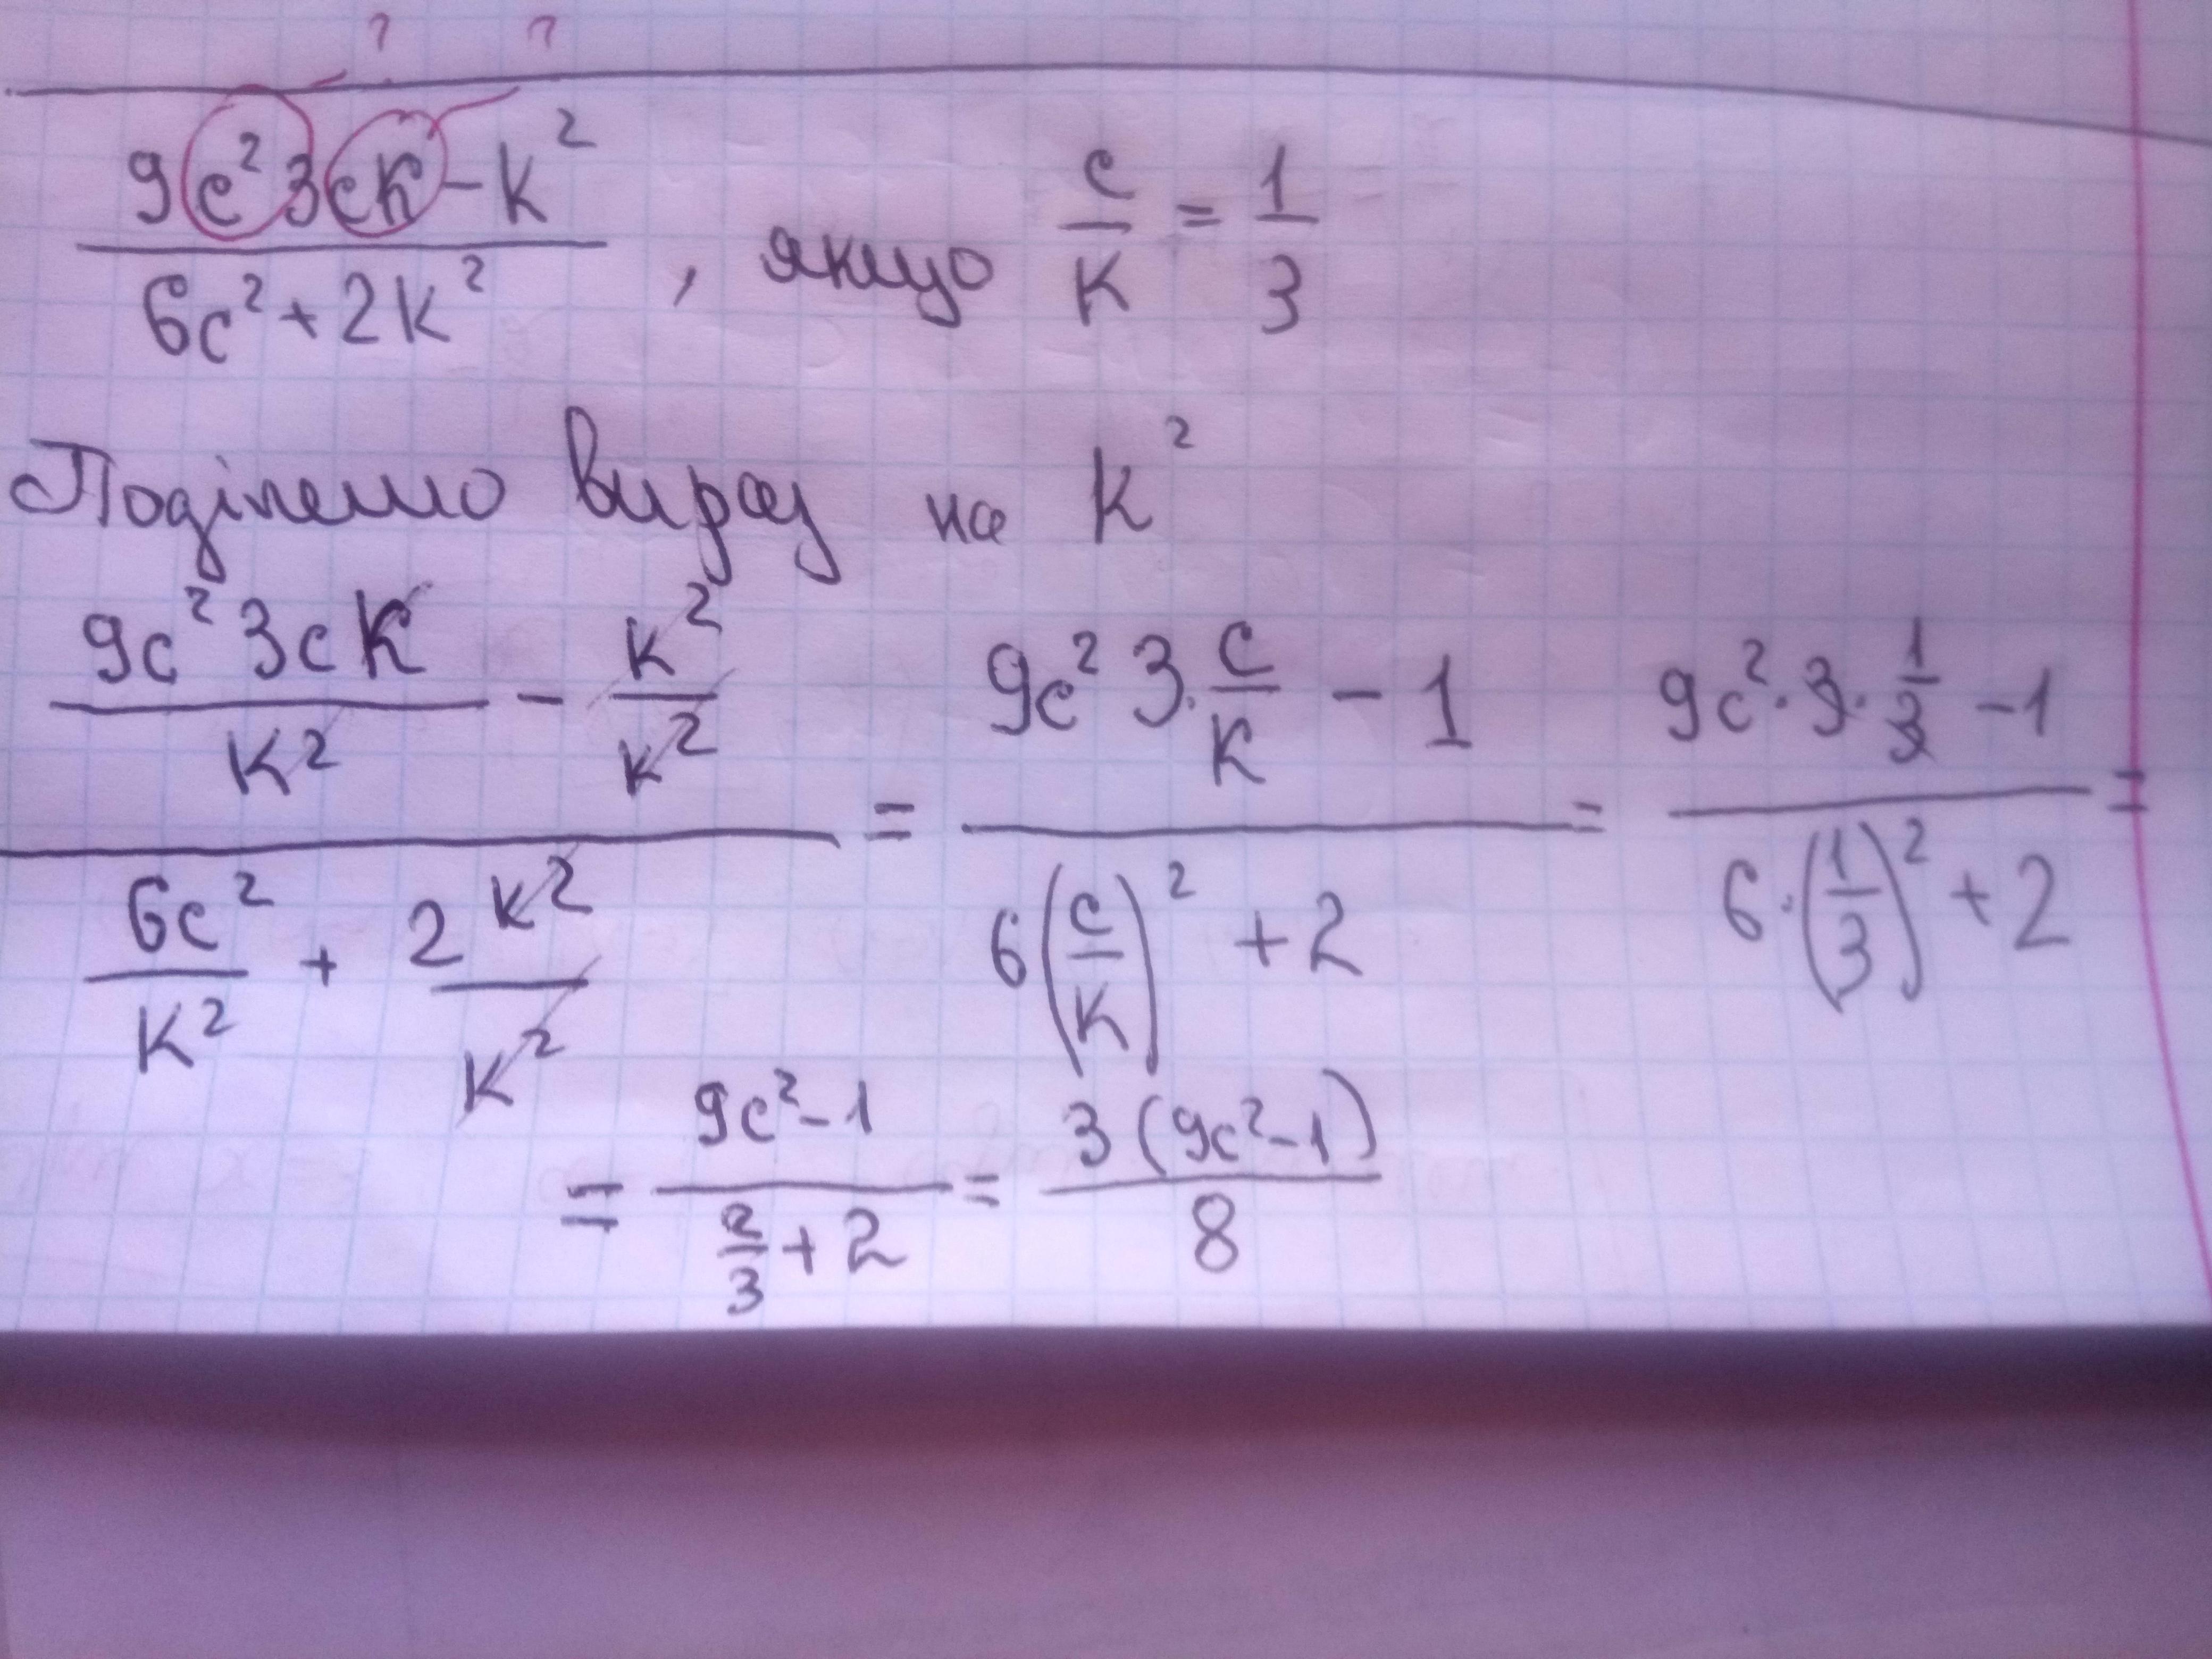 ? ?
(9c²3cк − к²)/(6c² + 2к²), якщо c/к = 1/3
Поділемо вираз на к²
(9c²3cк/к² − к²/к²)/(6c²/к² + 2к²/к²) = (9c²3·c/к − 1)/(6(c/к)² + 2) = (9c²·3·1/3 − 1)/(6·(1/3)² + 2) =
= (9c² − 1)/(2/3 + 2) = 3(9c² − 1)/8